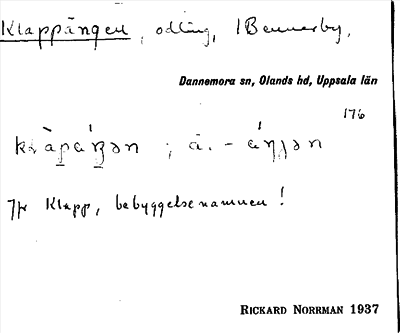 Klappängen, odling, i Bennerby,
Dannemora sn, Olands hd, Uppsala län
176
Jfr Klapp, bebyggelsenamnen!
RICKARD NORRMAN 1937